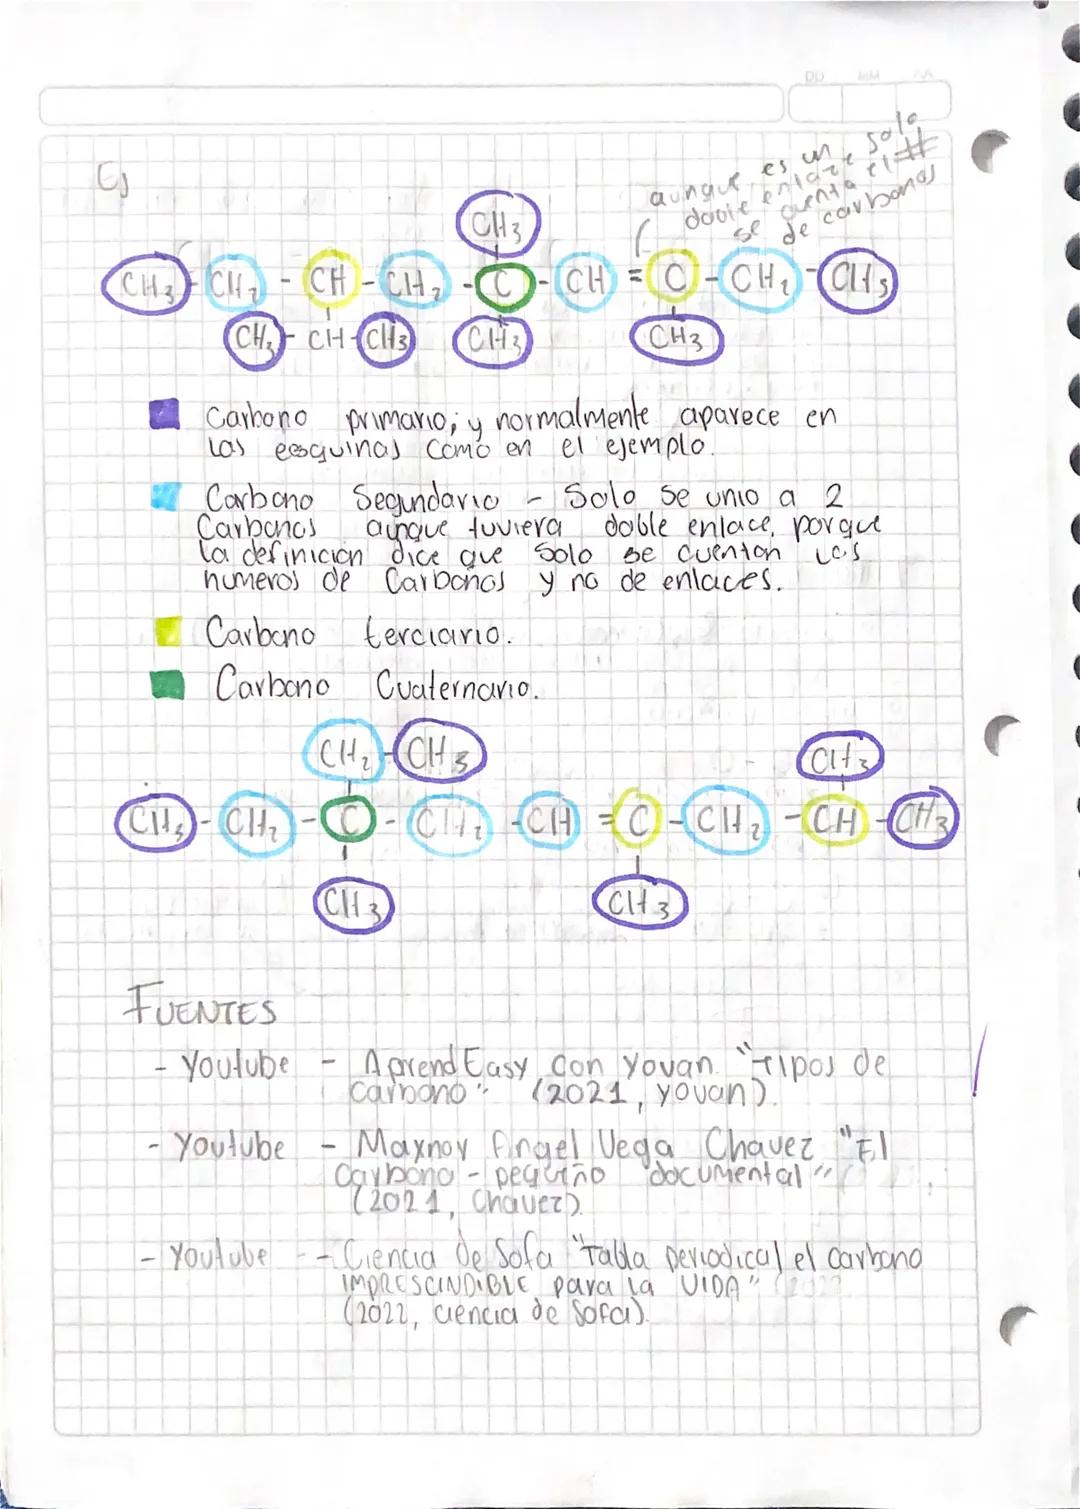 DD MM AA
Ej
aunque es un solo
doble enlace
se cuenta el #
de carbonos
CH3
CH3 - CH2 - CH - CH2 - C - CH = C - CH2 - CH3
CH3 - CH - CH3 CH3 CH3
Carbono primario; y normalmente aparece en
las esquinas como en el ejemplo.
Carbono Segundario - Solo se unio a 2
Carbonos aunque tuviera doble enlace, porque
la definicion dice que solo se cuentan los
numeros de Carbonos y no de enlaces.
Carbono terciario.
Carbono Cuaternario.
CH2 - CH3 CH3
CH3 - CH2 - C - CH2 - CH = C - CH2 - CH - CH3
CH3 CH3
FUENTES
- Youtube - AprendEasy con yovan. "Tipos de
carbono". (2021, yovan).
- Youtube - Maynor Angel Vega Chavez "El
Carbono - pequeño documental"
(2021, Chavez)
- Youtube - Ciencia de Sofa "Tabla periodica| el carbono
IMPRESCINDIBLE para la VIDA"
(2022, ciencia de Sofa).